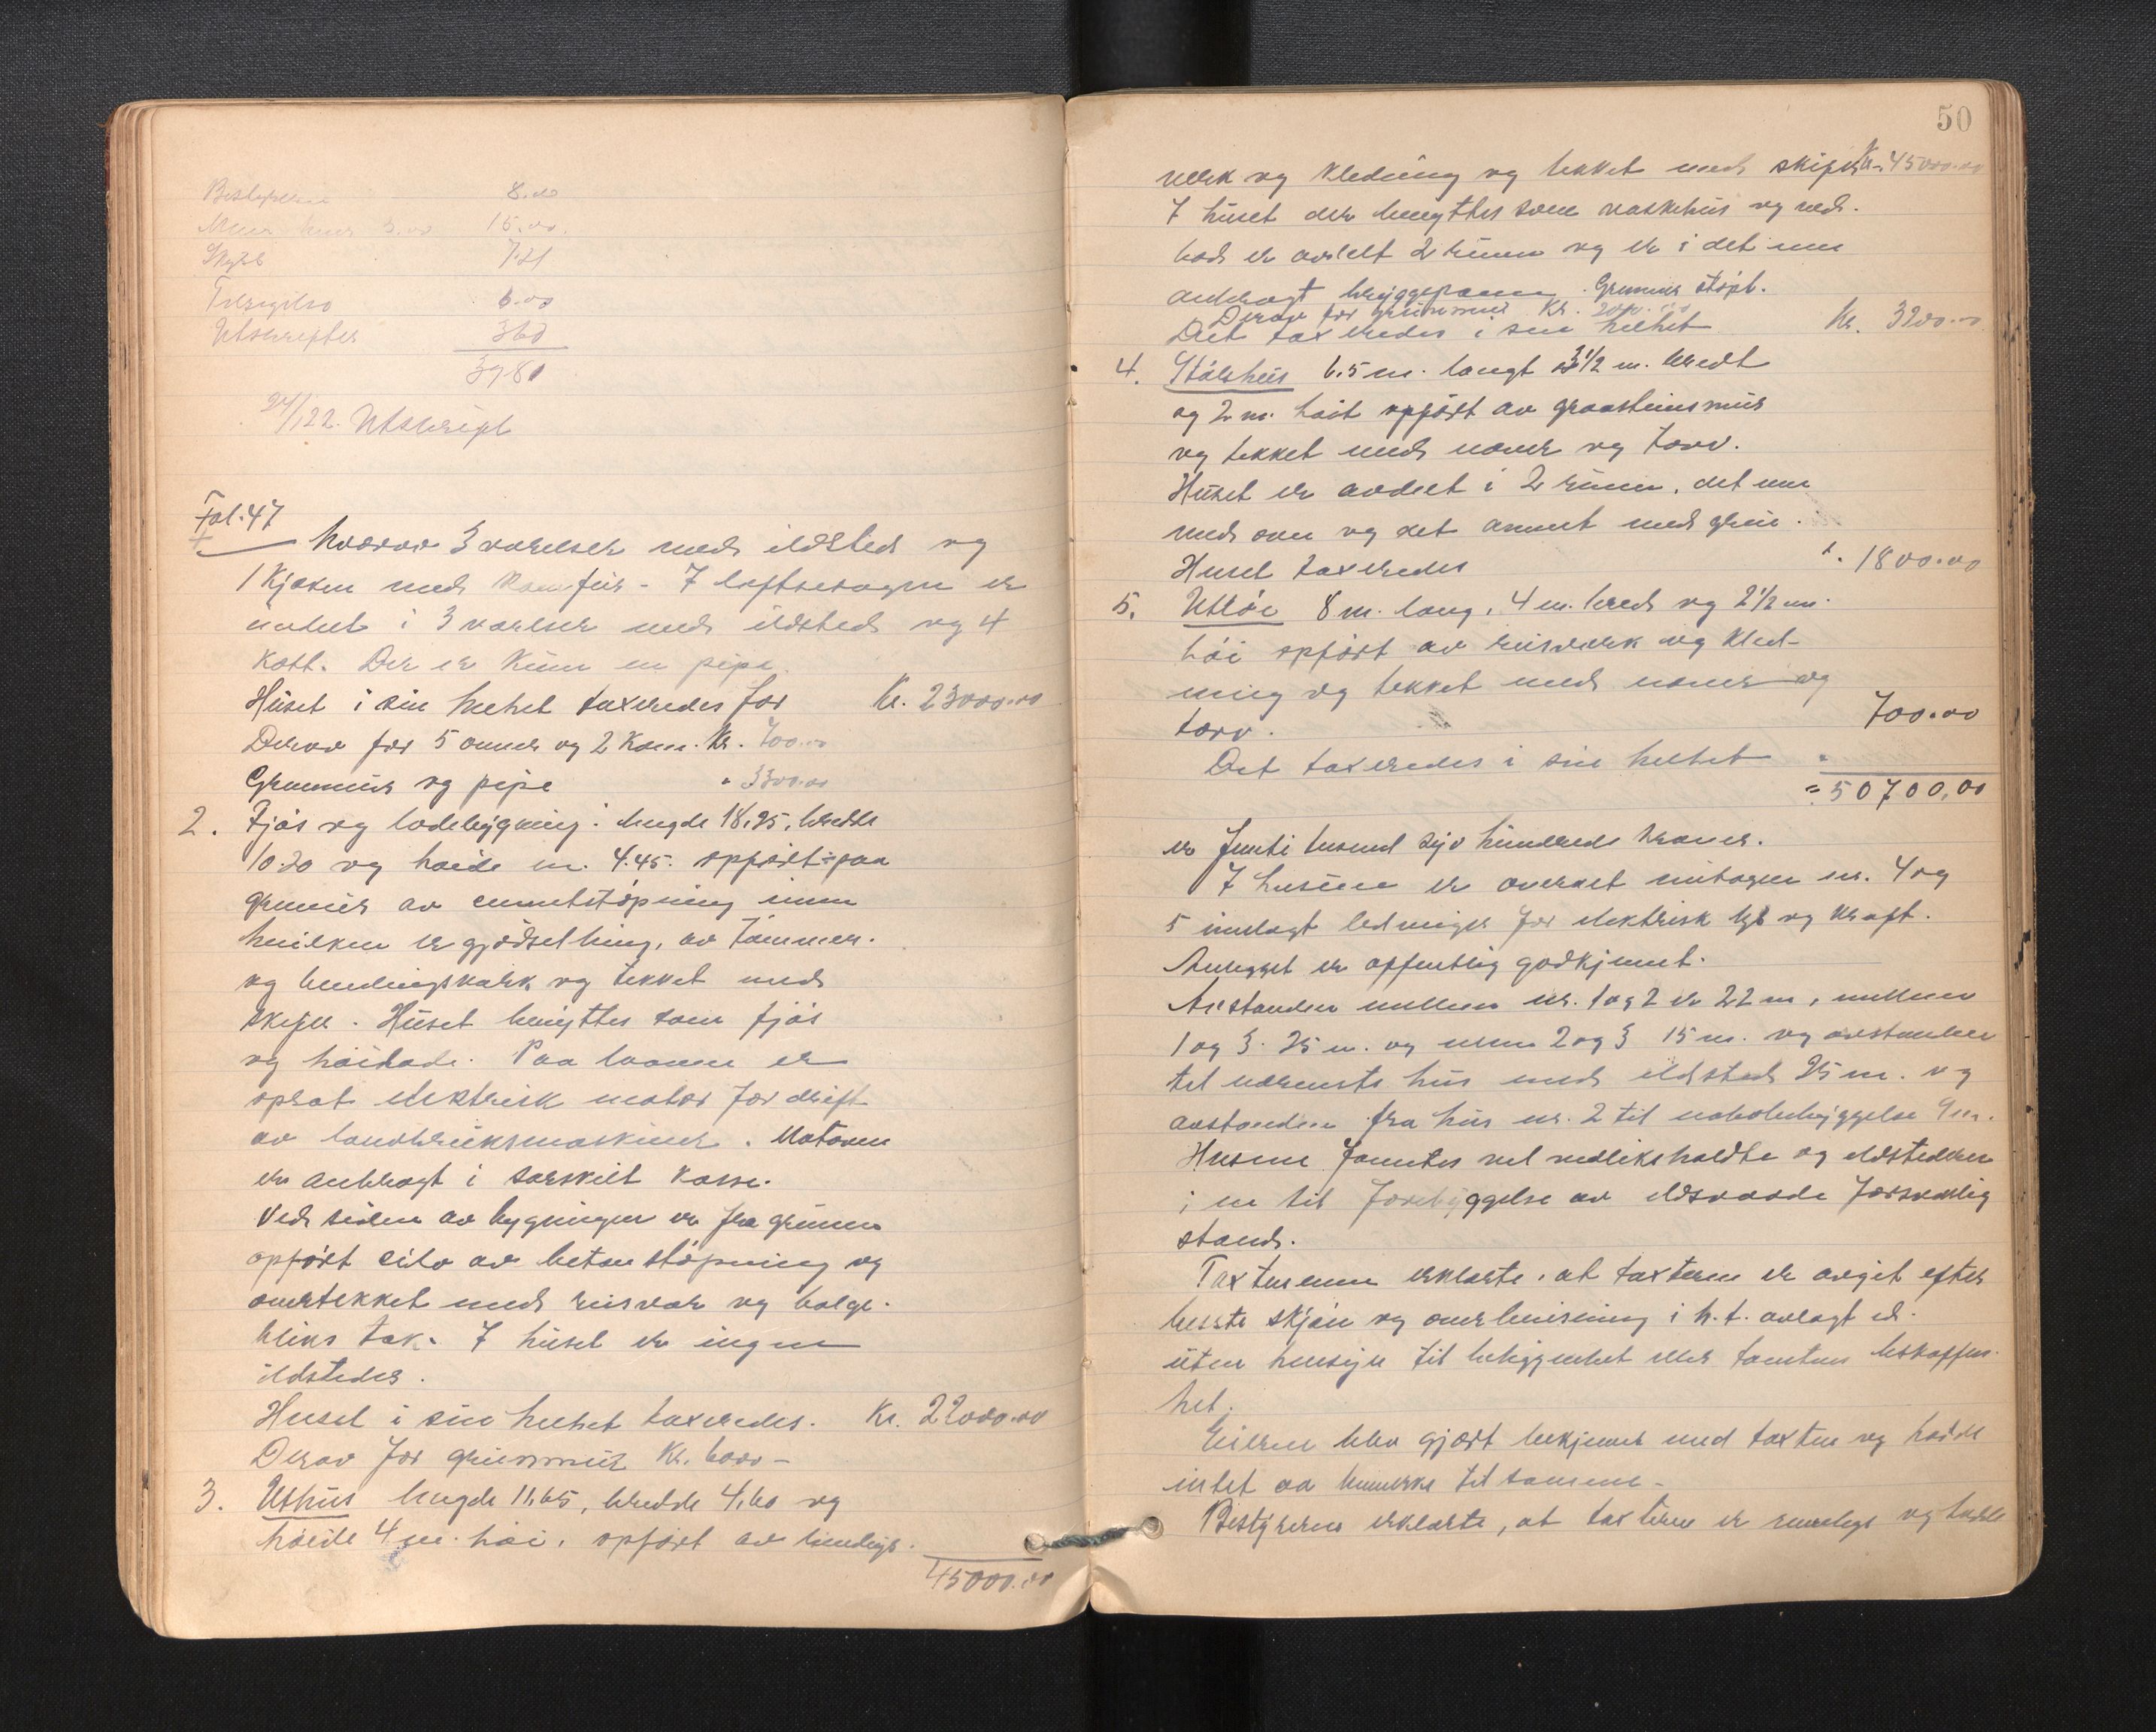 Bestyreren 8.00
Skyds 721
6.00
Utskrifter 360
3981
24/1 22. Utskrift
Fol. 47
hvorav 3 værelser med ildsted og
1 Kjøken med Komfür. I loftsetagen er
indret i 3 værelser med ildsted og 4
kott. Der er Kun en pipe.
Hüset i sin helhet taxeredes for Kr. 23000.00
Derav for 5 ovner og 2 Kom. Kr. 700.00
Grunmür og pipe " 3300.00
2. Fjøs og ladebygning: lengde 18,25, bredde
10.20 og høide m. 4.45. opført paa
grunmür av cementstøpning innen
hvilken er gjødselbing, av tømmer
og bindingsværk og tekket med
skifer. Hüset benyttes som fjøs
og høilade. Paa laaven er
opsat elektrisk motor for drift
av landbrüksmaskiner. Motoren
er anbragt i særskilt kasse.
Ved siden av bygningen er fra grünnen
opført silo av betonstøpning og
overtekket med reisvær og bølge-
bliks tak. I hüset er ingen
ildsteder.
Huset i sin helhet taxeredes. Kr. 22000.00
Derav for grünnmür Kr. 6000 -
3. Uthüs lengde 11,65, bredde 4,60 og
høide 4 m. høi, opført av bindings-
45000.00
50
verk og kledning og tekket med skifer Kr. 45000.00
I hüset der benyttes som vaskehus og ved-
bod er avdelt 2 rümm og er i det ene
anbragt bryggepanne. Grunmür støpt.
Derav for grünnmür Kr. 2000.00
Det taxeredes i sin helhet Kr. 3200.00
4. Stølshüs 6.5 m. langt 3 1/2 m. bredt
og 2 m. høit opført av graasteinsmür
og tekket med never og torv.
Hüset er avdelt i 2 rümm, det ene
med ovn og det annet med grüe.
Huset taxeredes " 1800.00
5. Utløe 8 m. lang, 4 m. bred og 2 1/2 m.
høi opført av reisverk og kled-
ning og tekket med never og
torv. 700.00
Det taxeredes i sin helhet "
= 50700,00
er femti tusend syv hündrede kroner.
I husene er overalt untagen nr. 4 og
5 innlagt ledninger for elektrisk lys og kraft.
Anlegget er offentlig godkjennt.
Avstanden mellem nr. 1 og 2 er 22 m, mellem
1 og 3. 25 m. og mellem 2 og 3 15 m. og avstanden
til nærmeste hüs med ildsted 25 m. og
avstanden fra hüs nr. 2 til nabobebyggelse 9 m.
Husene fanntes vel vedlikeholdte og ildstederne
i en til forebyggelse av ildsvaade forsvarlig
stand.
Taxtmenn erklærte, at taxterne er avgit efter
beste skjøn og overbevisning i h.t. avlagt ed.
üten hensyn til beliggenhet eller tomtens beskaffen-
het.
Eieren blev gjort bekjennt med taxten og hadde
intet aa bemerke til samme.
Bestyreren erklærte, at taxterne er rimelige og hadde